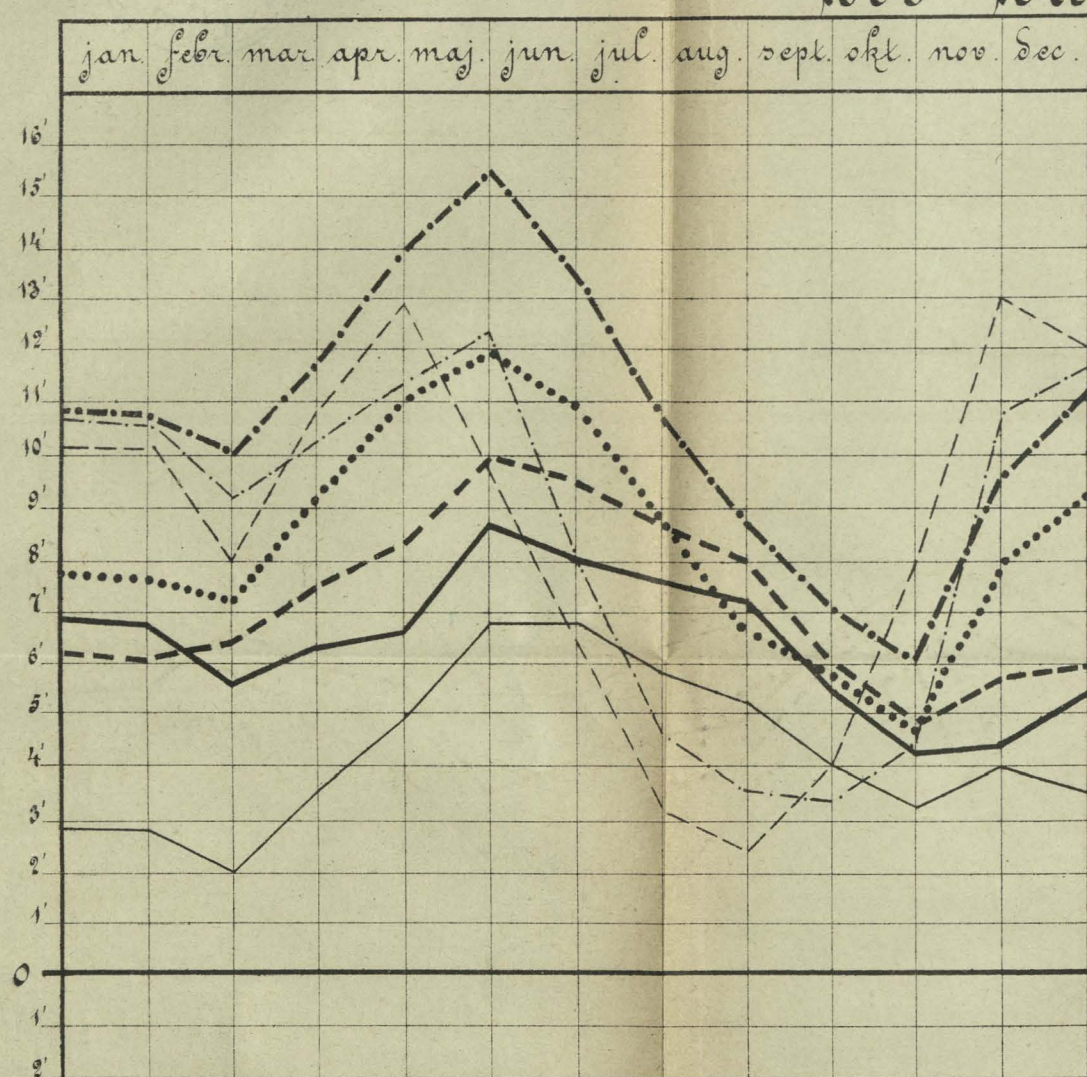 jan. febr. mar. apr. maj. jun. jul. aug. sept. okt. nov. dec.
16'
15'
14'
13'
12'
11'
10'
9'
8'
7'
6'
5'
4'
3'
2'
1'
0
1'
2'